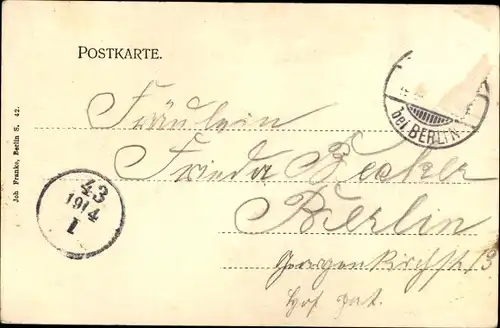 POSTKARTE.
bei BERLIN
Fräulein
Frieda Becker
Berlin
Georgenkirchstr. 13
Hof part.
43
1914
I
Joh Franke, Berlin S. 42.